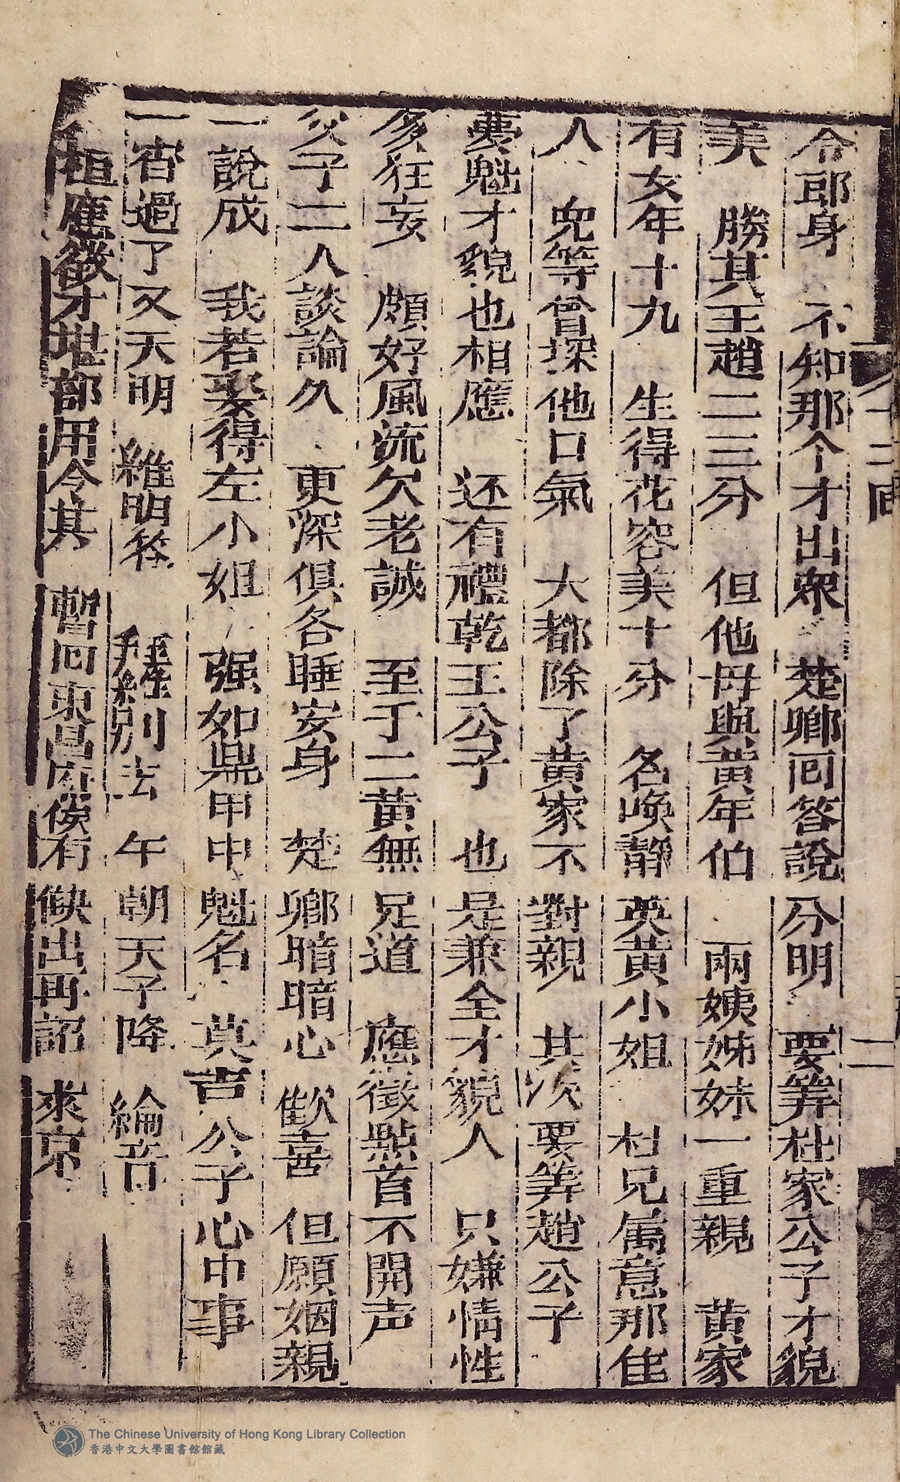 令郎身 不知那个才出衆 楚卿回答說分明 要筭杜家公子才貌
美 勝其王趙二三分 但他母與黃年伯 兩姨姊妹一重親 黃家
有女年十九 生得花容美十分 名喚靜英黃小姐 杜兄属意那佳
人 兜等曾探他口氣 大都除了黃家不對親 其次要筭趙公子
夢魁才貌也相應 还有禮乾王公子 也是兼全才貌人 只嫌情性
多狂妄 頗好風流欠老誠 至于二黃無足道 應徵點首不開声
父子二人談論久 更深俱各睡安身 楚卿暗暗心歡喜 但願姻親
一說成 我若娶得左小姐 强如鼎甲中魁名 莫言公子心中事
一宵過了又天明 維明各 拜繼別去 午朝天子降 綸音
桓應徵才堪部用今其 暫回東昌府候有缺出再詔 來京
十二回
二
The Chinese University of Hong Kong Library Collection
香港中文大學圖書館館藏